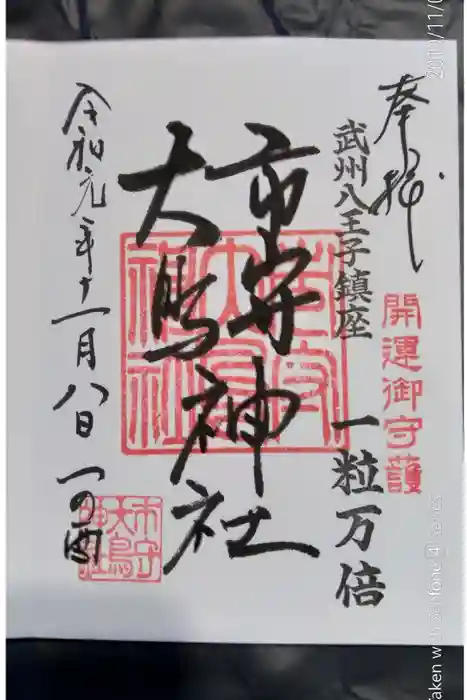 奉拝
開運御守護
武州八王子鎮座 一粒万倍
市守
大鳥神社
令和元年十一月八日 一の酉
市守
大鳥
神社
Taken with Zenfone 4 series